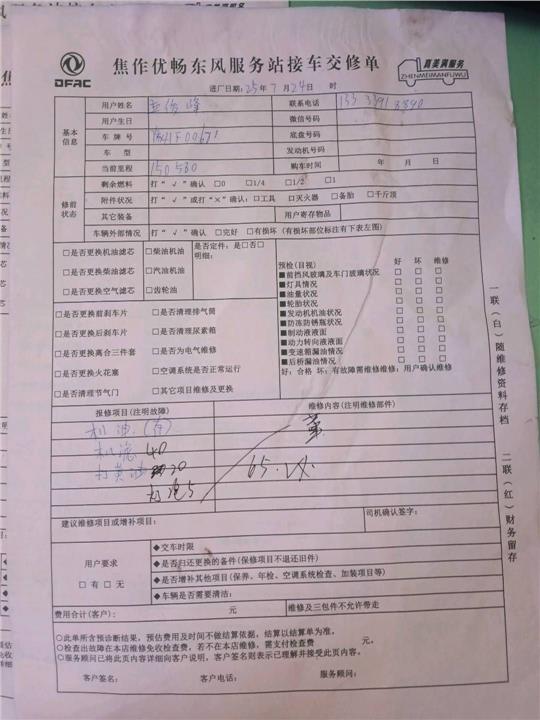 DFAC
焦作优畅东风服务站接车交修单
真美满服务
ZHENMEIMANFUWU
进厂日期：25年 7 月 24日 时
基本信息
用户姓名
联系电话
用户生日
微信号码
车 牌 号
底盘号码
车 型
发动机号码
当前里程 150530
购车时间 年 月 日
修前状态
剩余燃料 打“ √ ”确认 □0 □1/4 □1/2 □1
附件状况 打“ √ ”或打“×”确认：□工具 □灭火器 □备胎 □千斤顶
其它装备
用户寄存物品
车辆外部情况 打“ √ ”确认 □完好 □有损坏（有损坏部位标注有下表左图）
□是否更换机油滤芯 □柴油机油
□是否更换柴油滤芯 □汽油机油
□是否更换空气滤芯 □齿轮油
是否定件：是□否□
明细：
□是否更换前刹车片 □是否清理排气筒
□是否更换后刹车片 □是否清理尿素箱
□是否更换离合三件套 □是否为电气维修
□是否更换火花塞 □空调系统是否正常运行
□是否清理节气门 □其它项目维修及更换
预检（目视） 好 坏 维修
■前挡风玻璃及车门玻璃状况 □ □ □
■灯具情况 □ □ □
■油量状况 □ □ □
■轮胎状况 □ □ □
■发动机机油状况 □ □ □
■防冻防锈瓶状况 □ □ □
■制动液液面 □ □ □
■动力转向液液面 □ □ □
■变速箱漏油情况 □ □ □
■后桥漏油情况 □ □ □
好：合格 坏：有故障需维修维修：用户确认维修
报修项目（注明故障）
维修内容（注明维修部件）
机油
机滤 40
打黄油 20
5
65.
建议维修项目或增补项目：
司机确认签字：
用户要求
□ 有 □ 无
◆交车时限
◆是否归还更换的备件（保修项目不退还旧件）
◆是否增补其他项目（保养、年检、空调系统检查、加装项目等）
◆车辆是否需要清洁：
费用合计（客户）： 元
维修及三包件不允许带走
○此单所含预诊断结果，预估费用及时间不做结算依据，结算以结算单为准。
○检查出故障在本店维修免收检查费，若不在本店维修，需支付检查费 元。
○服务顾问已将此页内容详细向客户说明，客户签名则表示已理解并接受此页内容。
客户签名： 客户电话： 服务顾问：
一联（白）随维修资料存档 二联（红）财务留存